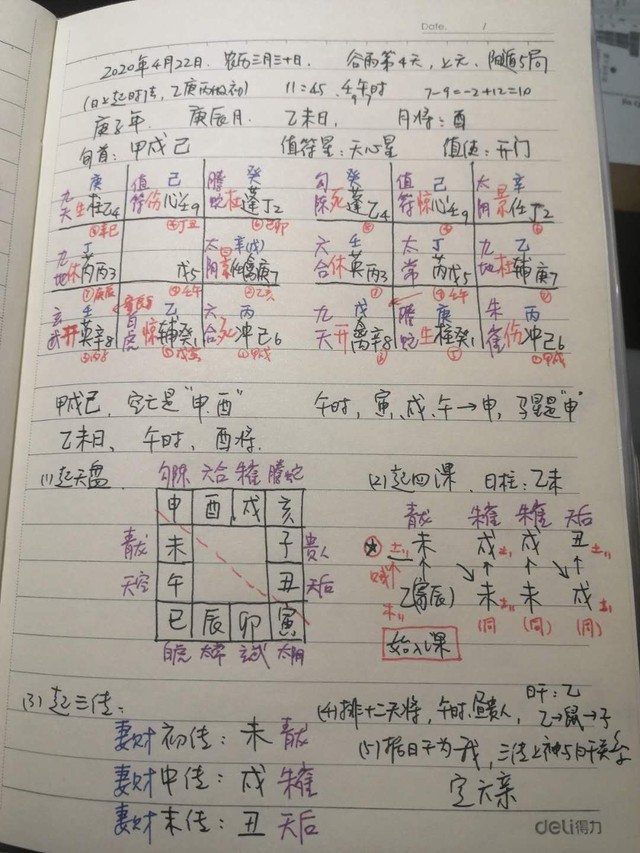 Date. /
2020年4月22日. 农历三月三十日. 谷雨第4天,上元,阳遁5局
(日上起时法,乙庚丙作初) 11:45 壬午时 7-9=-2+12=10
庚子年. 庚辰月. 乙未日. 月将:酉
旬首:甲戌己 值符星:天心星 值使:开门
庚 值 己 螣 癸 勾 壬 值 己 太 辛
九天 生 柱乙4 符 伤 心壬9 蛇 杜 蓬丁2 陈 死 蓬乙4 符 惊 心壬9 阴 景 任丁2
九地 丁 休 芮丙3 戊5 太阴 辛(戊) 景 庚7 六合 壬 休 英丙3 太常 丁 芮戊5 九地 乙 杜 辅庚7
玄武 壬 开 英辛8 白虎 乙 惊 辅癸1 六合 丙 死 冲己6 九天 戊 开 禽辛8 螣蛇 庚 生 柱癸1 朱雀 丙 伤 冲己6
甲戌己,空亡是"申、酉" 午时,寅、戌、午→申,马星是"申"
乙未日、午时、酉将.
(1)起天盘. 勾陈 六合 朱雀 螣蛇 (2)起四课. 日柱:乙未
申 酉 戌 亥 青龙 朱雀 朱雀 天后
青龙 未 子 贵人 未 戌 戌 丑
天空 午 丑 天后 乙(寄辰) 未 未 戌
巳 辰 卯 寅 (同) (同) (同)
白虎 太常 玄武 太阴 始入课
(3)起三传: (4)排十二天将,午时:昼贵人, 日干:乙 乙→鼠→子
妻财 初传:未 青龙 (5)据日干为我,三传上神与日干关系
妻财 中传:戌 朱雀 定六亲
妻财 末传:丑 天后
deli得力